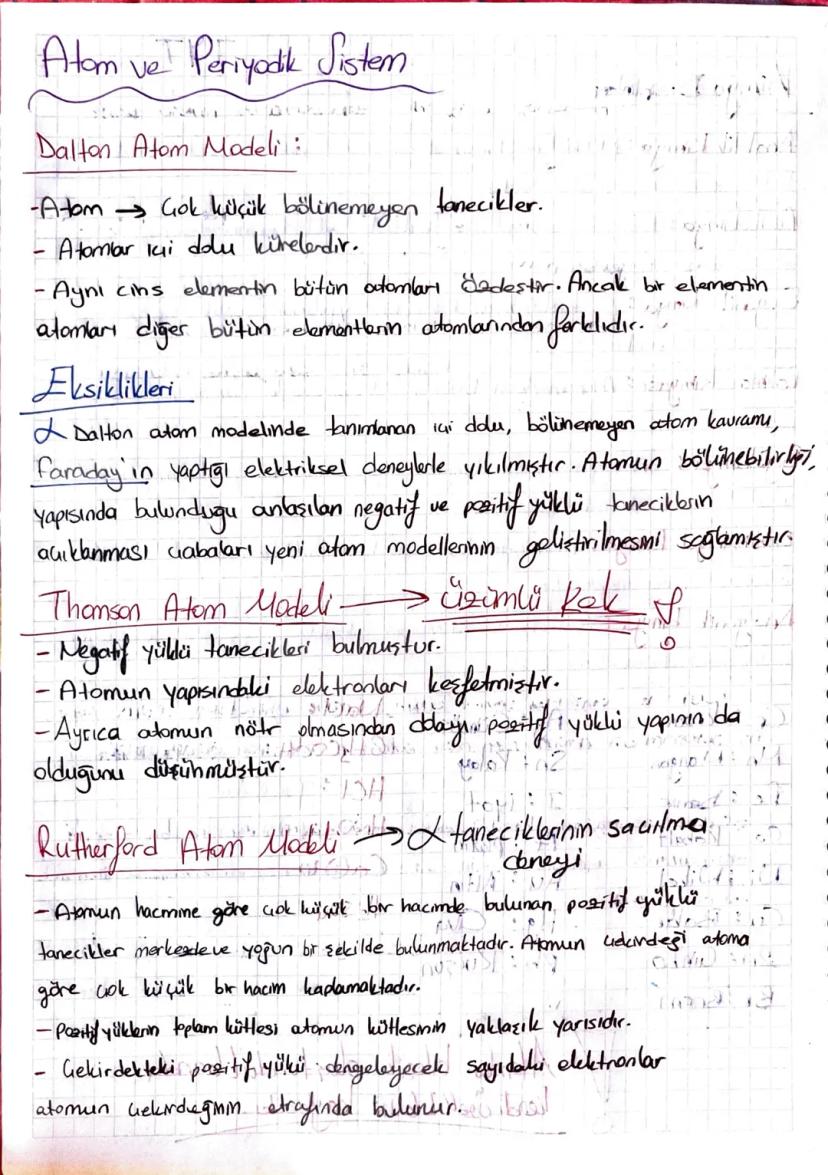 Atom ve Periyodik Sistem
Dalton Atom Modeli :
-Atom → Çok küçük bölünemeyen tanecikler.
- Atomlar içi dolu kürelerdir.
- Aynı cins elementin bütün atomları özdeştir. Ancak bir elementin
atomları diğer bütün elementlerin atomlarından farklıdır.
Eksiklikleri
α Dalton atom modelinde tanımlanan içi dolu, bölünemeyen atom kavramı,
Faraday'ın yaptığı elektriksel deneylerle yıkılmıştır. Atomun bölünebilirliği,
yapısında bulunduğu anlaşılan negatif ve pozitif yüklü taneciklerin
açıklanması çabaları yeni atom modellerinin geliştirilmesini sağlamıştır.
Thomson Atom Modeli → Üzümlü Kek !
- Negatif yüklü tanecikleri bulmuştur.
- Atomun yapısındaki elektronları keşfetmiştir.
- Ayrıca atomun nötr olmasından dolayı pozitif yüklü yapının da
olduğunu düşünmüştür.
Rutherford Atom Modeli → α taneciklerinin saçılma
deneyi
- Atomun hacmine göre çok küçük bir hacimde bulunan pozitif yüklü
tanecikler merkezde ve yoğun bir şekilde bulunmaktadır. Atomun çekirdeği atoma
göre çok küçük bir hacim kaplamaktadır.
- Pozitif yüklerin toplam kütlesi atomun kütlesinin yaklaşık yarısıdır.
- Çekirdekteki pozitif yükü dengeleyecek sayıdaki elektronlar
atomun çekirdeğinin etrafında bulunur.